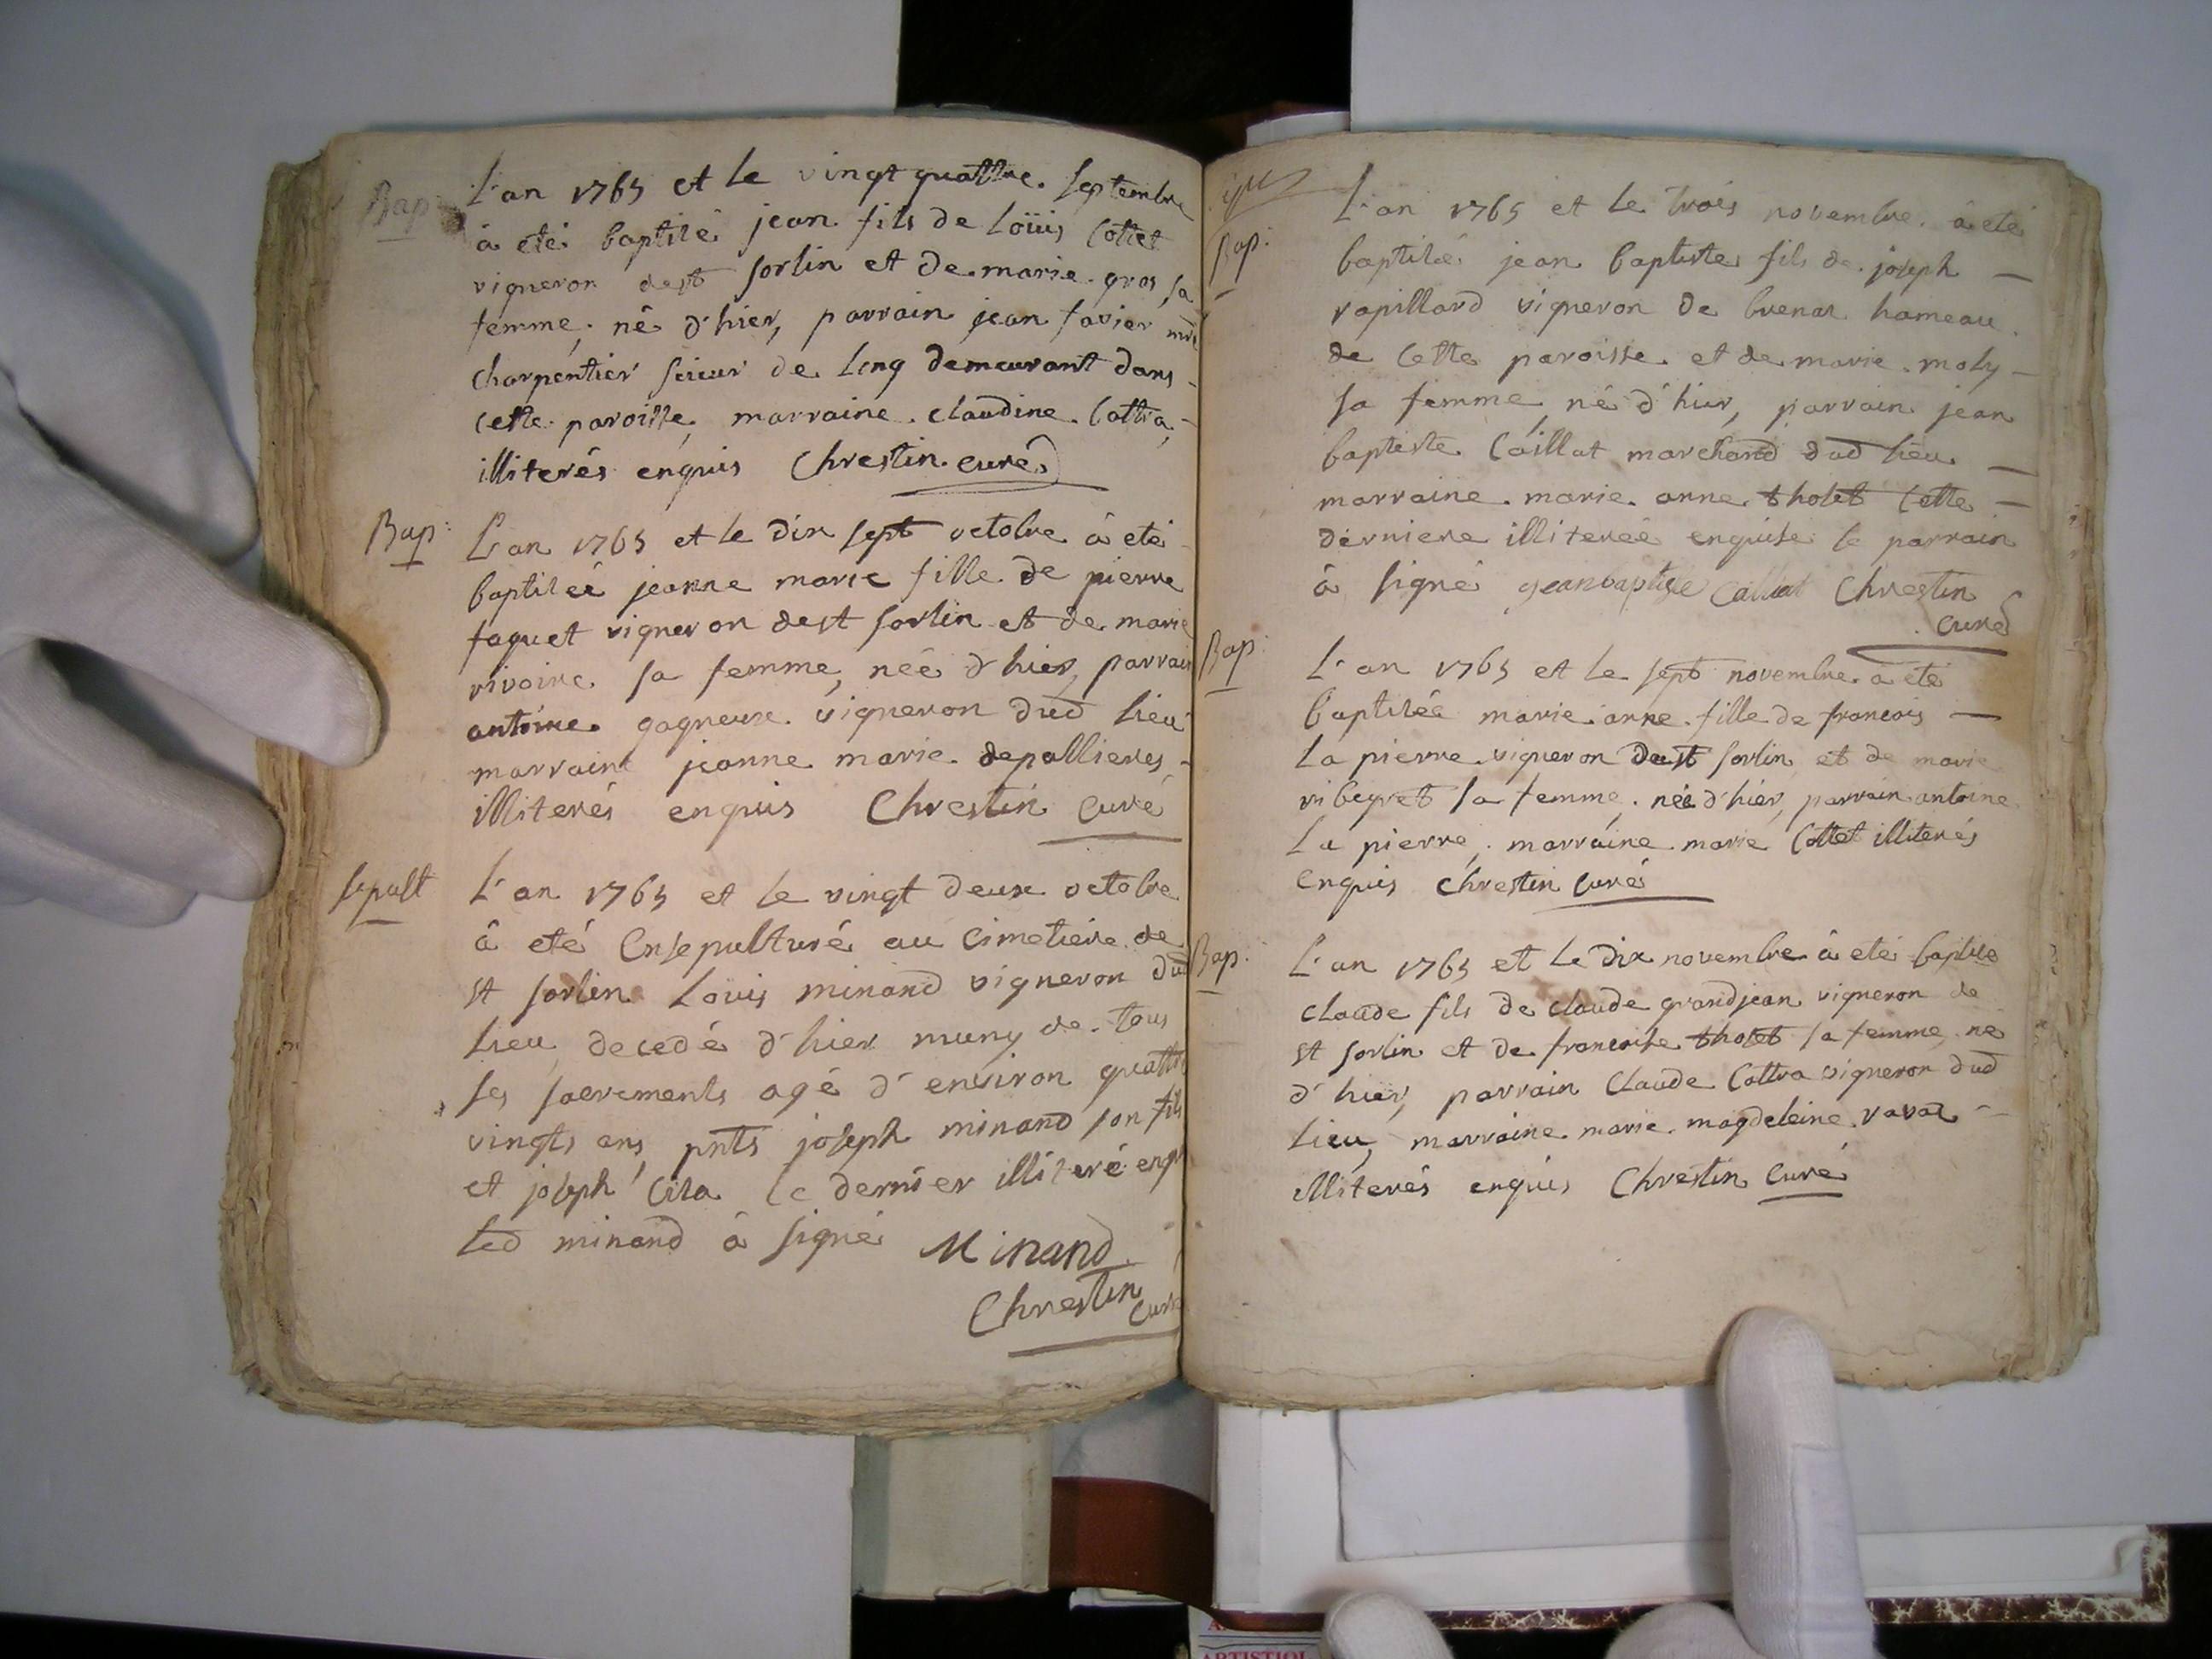 Bap:
L'an 1765 et le vingt quattre septembre
à eté baptisé jean fils de loüis Cottet
vigneron de st sorlin et de marie gros sa
femme, né d'hier, parrain jean favier mre
charpentier scieur de long demeurant dans
cette paroisse, marraine claudine Cottra,
illiterés enquis Chrestin curé
Bap:
L'an 1765 et le dix sept octobre à eté
baptisée jeanne marie fille de pierre
faquet vigneron de st sorlin et de marie
vivoire sa femme, née d'hier, parrain
antoine gagneux vigneron dud lieu
marraine jeanne marie depallieres
illiterés enquis Chrestin curé
Sepult
L'an 1765 et le vingt deux octobre
à eté Ensepulturé au cimetiere de
st sorlin Loüis minand vigneron dud
lieu decedé d'hier muny de tous
ses sacrements agé d'environ quattre
vingts ans, pnts joseph minand son fils
et joseph Cira le dernier illiteré enquis
led minand à signé Minand
Chrestin curé
Bap:
L'an 1765 et le trois novembre à eté
baptisé jean baptiste fils de joseph
rapillard vigneron de brenaz hameau
de cette paroisse et de marie moly
sa femme né d'hier, parrain jean
baptiste Caillat marchand dud lieu
marraine marie anne tholet cette
derniere illiterée enquise le parrain
à signé jeanbaptiste Calliat Chrestin
curé
Bap:
L'an 1765 et le sept novembre à eté
baptisée marie anne fille de francois
la pierre vigneron de st sorlin et de marie
vibegret sa femme, née d'hier, parrain antoine
La pierre, marraine marie Cottet illiterés
enquis Chrestin curé
Bap:
L'an 1765 et le dix novembre à eté baptisé
claude fils de claude grandjean vigneron de
st sorlin et de francoise tholet sa femme né
d'hier, parrain Claude Cottra vigneron dud
lieu, marraine marie magdeleine ravaz
illiterés enquis Chrestin Curé